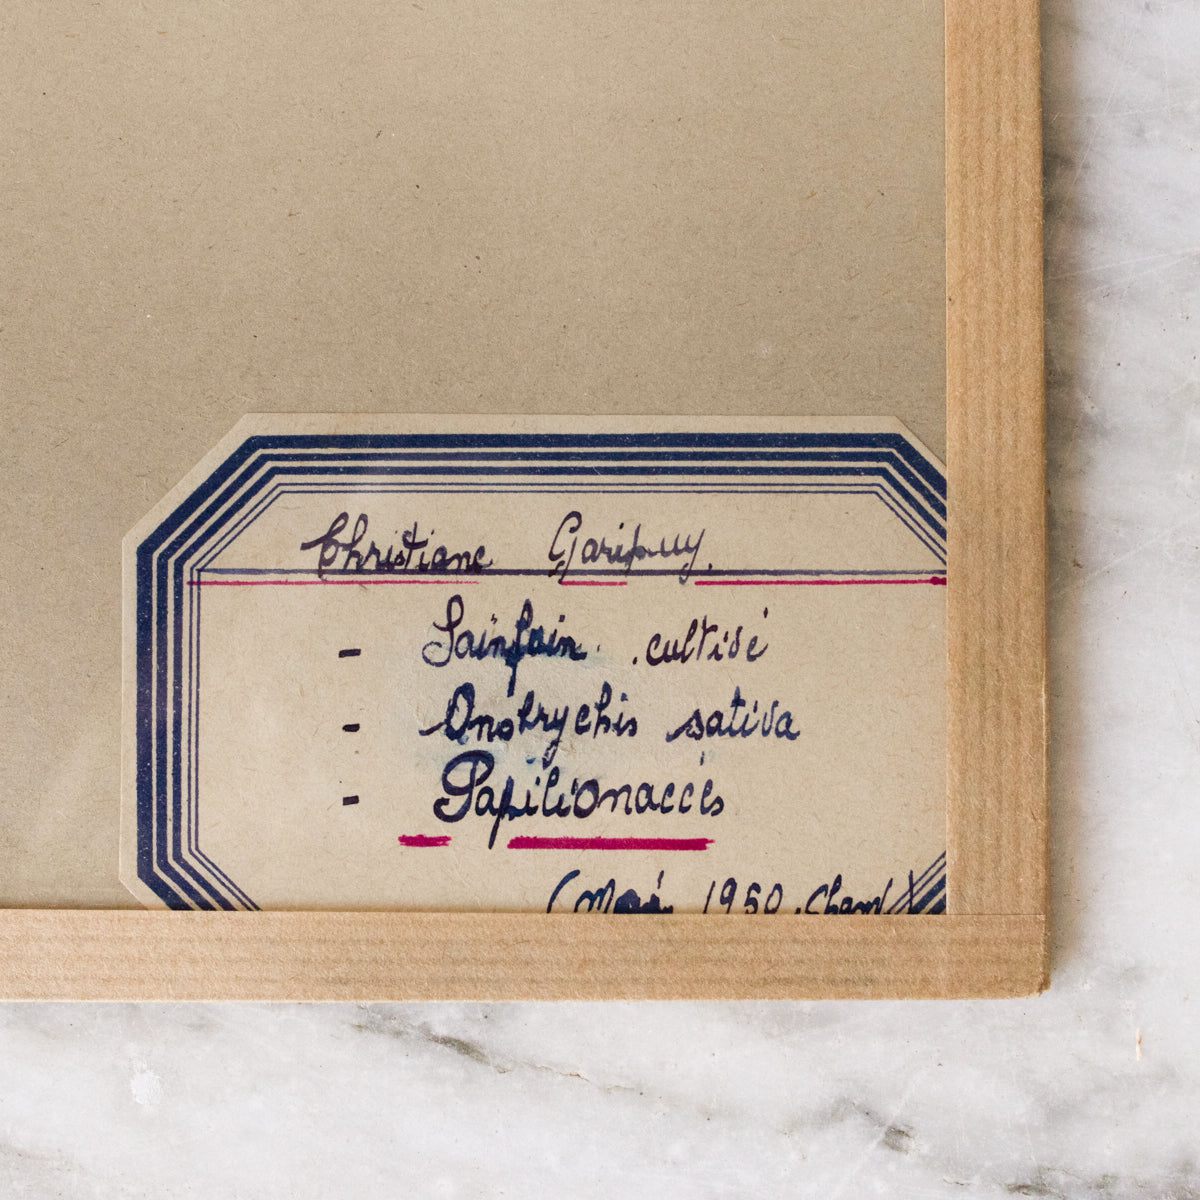 Christiane Garipuy.
- Sainfoin cultivé
- Onobrychis sativa
- Papilionacées
(Mai 1950. champ)